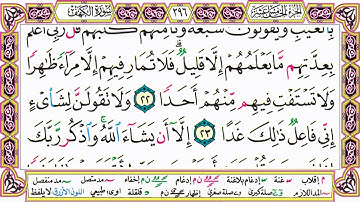 سورة الكهف ٢٩٦ الجزء الخامس عشر
بِالْغَيْبِ وَيَقُولُونَ سَبْعَةٌ وَثَامِنُهُمْ كَلْبُهُمْ قُلْ رَبِّي أَعْلَمُ
بِعِدَّتِهِم مَّا يَعْلَمُهُمْ إِلَّا قَلِيلٌ فَلَا تُمَارِ فِيهِمْ إِلَّا مِرَاءً ظَاهِرًا
وَلَا تَسْتَفْتِ فِيهِم مِّنْهُمْ أَحَدًا ٢٢ وَلَا تَقُولَنَّ لِشَا۟يْءٍ
إِنِّي فَاعِلٌ ذَٰلِكَ غَدًا ٢٣ إِلَّا أَن يَشَاءَ اللَّهُ وَاذْكُر رَّبَّكَ